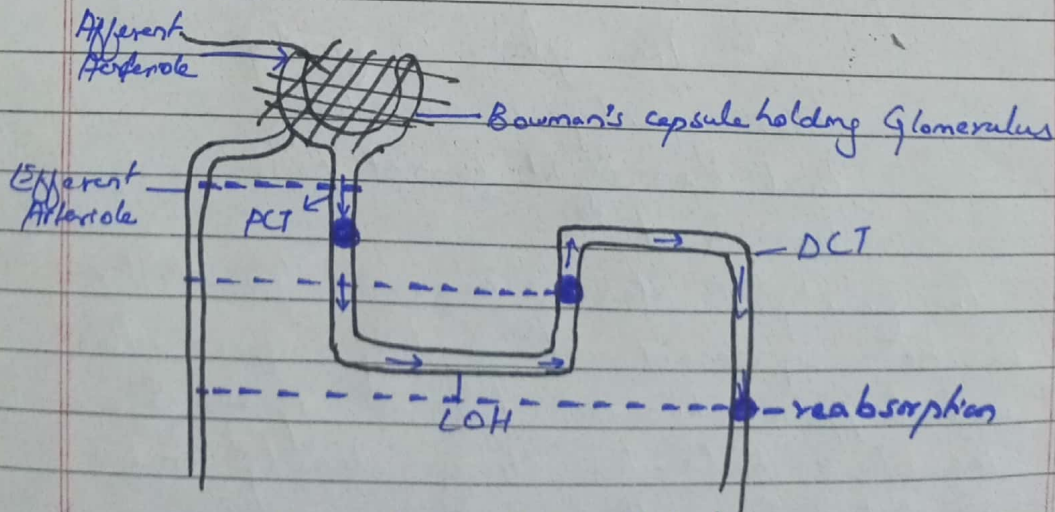 Afferent
Arteriole
Bowman's capsule holding Glomerulus
Efferent
Arteriole
PCT
DCT
LOH
reabsorption